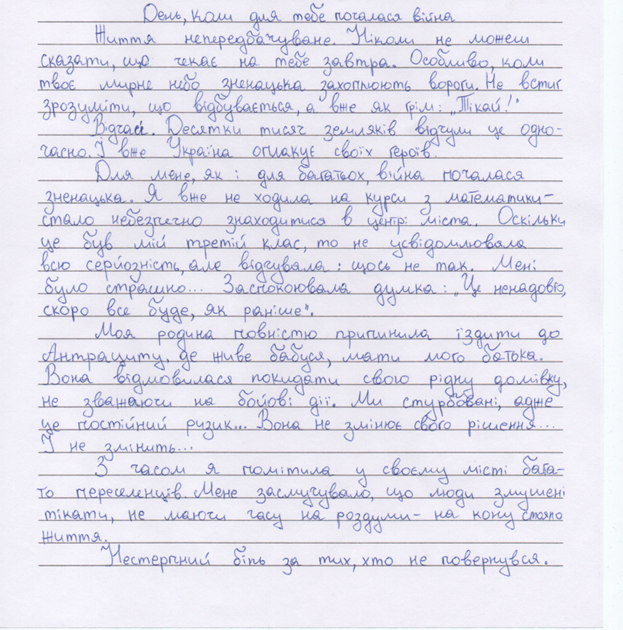 День, коли для тебе почалася війна
Життя непередбачуване. Ніколи не можеш
сказати, що чекає на тебе завтра. Особливо, коли
твоє мирне небо зненацька захоплюють вороги. Не встиг
зрозуміти, що відбувається, а вже як грім: „Тікай!"
Відчай. Десятки тисяч земляків відчули це одно-
часно. І вже Україна оплакує своїх героїв.
Для мене, як і для багатьох, війна почалася
зненацька. Я вже не ходила на курси з математики –
стало небезпечно знаходитися в центрі міста. Оскільки
це був мій третій клас, то не усвідомлювала
всю серйозність, але відчувала: щось не так. Мені
було страшно... Заспокоювала думка: „Це ненадовго,
скоро все буде, як раніше".
Моя родина повністю припинила їздити до
Антрациту, де живе бабуся, мати мого батька.
Вона відмовилася покидати свого рідну домівку,
не зважаючи на бойові дії. Ми стурбовані, адже
це постійний ризик... Вона не змінює свого рішення...
І не змінить...
З часом я помітила у своєму місті бага-
то переселенців. Мене засмучувало, що люди змушені
тікати, не маючи часу на роздуми – на кону стояло
життя.
Нестерпний біль за тих, хто не повернувся.